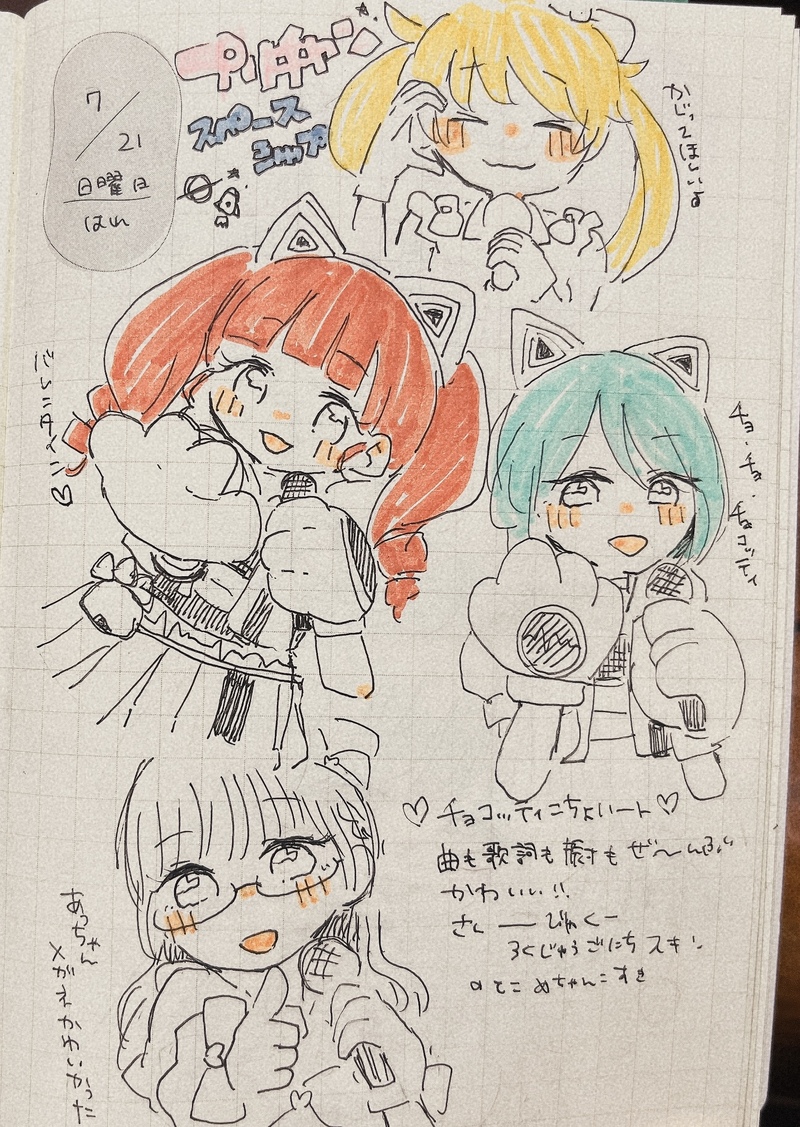 7/21
日曜日
はれ
プリチャン
スペース
シップ
かじってほしいよ
バレンタイン♡
チョ・チョ・チョコッティ
♡チョコッティにちょいート♡
曲も歌詞も振付もぜ〜んぶ
かわいい!!
さんーびゃくー
ろくじゅうごにちスキ
のとこめちゃんこすき
あっちゃん
メガネかわいかった